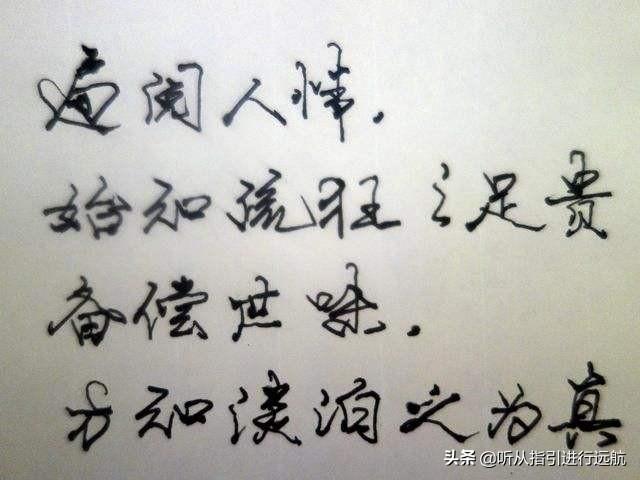 遍阅人情.
始知疏狂之足贵
备偿世味.
方知淡泊之为真
头条 @听从指引进行远航